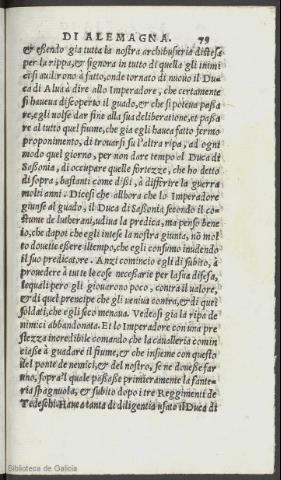 DI ALEMAGNA. 79
& essendo gia tutta la nostra archibusieria distesa
per la rippa, & signora in tutto di quella gli inimi
ci si auilirono à fatto, onde tornato di nuouo il Du
ca di Alua à dire allo Imperadore, che certamente
si haueua discoperto il guado, & che si poteua passa
re, egli uolse dar fine alla sua deliberatione, et passa
re al tutto quel fiume, che gia egli haueа fatto fermo
proponimento, di trouarsi su l'altra ripa, ad ogni
modo quel giorno, per non dare tempo al Duca di
Sassonia, di occupare quelle fortezze, che ho detto
di sopra, bastanti come dissi, à differire la guerra
molti anni. Dicesi che allhora che lo Imperadore
giunse al guado, il Duca di Sassonia secondo il co
stume de lutherani, udina la predica, ma penso bene
io, che dapoi che egli intese la nostra giunta, nõ mol
to douette essere il tempo, che egli consumo in udendo
il suo predicatore. Anzi comincio egli di subito, à
prouedere à tutte le cose necessarie per la sua difesa,
lequali pero gli giouarono poco, contra il ualore,
& di quel prencipe che gli ueniua contra, & di quei
soldati, che egli seco menaua. Vedeasi gia la ripa de
nimici abbandonata. Et lo Imperadore con una pre
stezza incredibile comando che la cauallería comin
ciasse à guadare il fiume, & che insieme con questo
del ponte de nemici, & del nostro, se ne douesse far
uno, sopra'l quale passasse primieramente la fante-
ria spagnuola, & subito dapoi tre Reggimenti de
Tedeschi. Hauea tanta di diligentia usato il Duca di
Biblioteca de Galicia